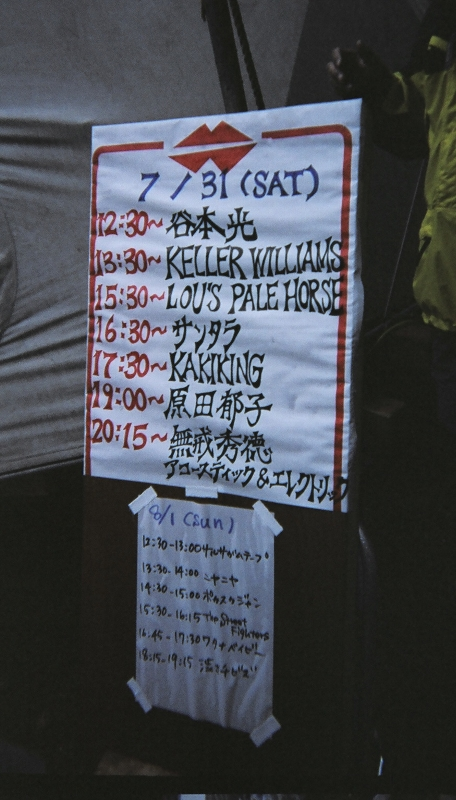 7/31(SAT)
12:30~谷本光
13:30~KELLER WILLIAMS
15:30~LOU'S PALE HORSE
16:30~サンタラ
17:30~KAKIKING
19:00~原田郁子
20:15~無戒秀徳
アコースティック&エレクトリック
8/1(sun)
12:30-13:00
13:30-14:00 ニヤニヤ
14:30-15:00 ポカスカジャン
15:30-16:15 The Street
Fighters
16:45-17:30
18:15-19:15